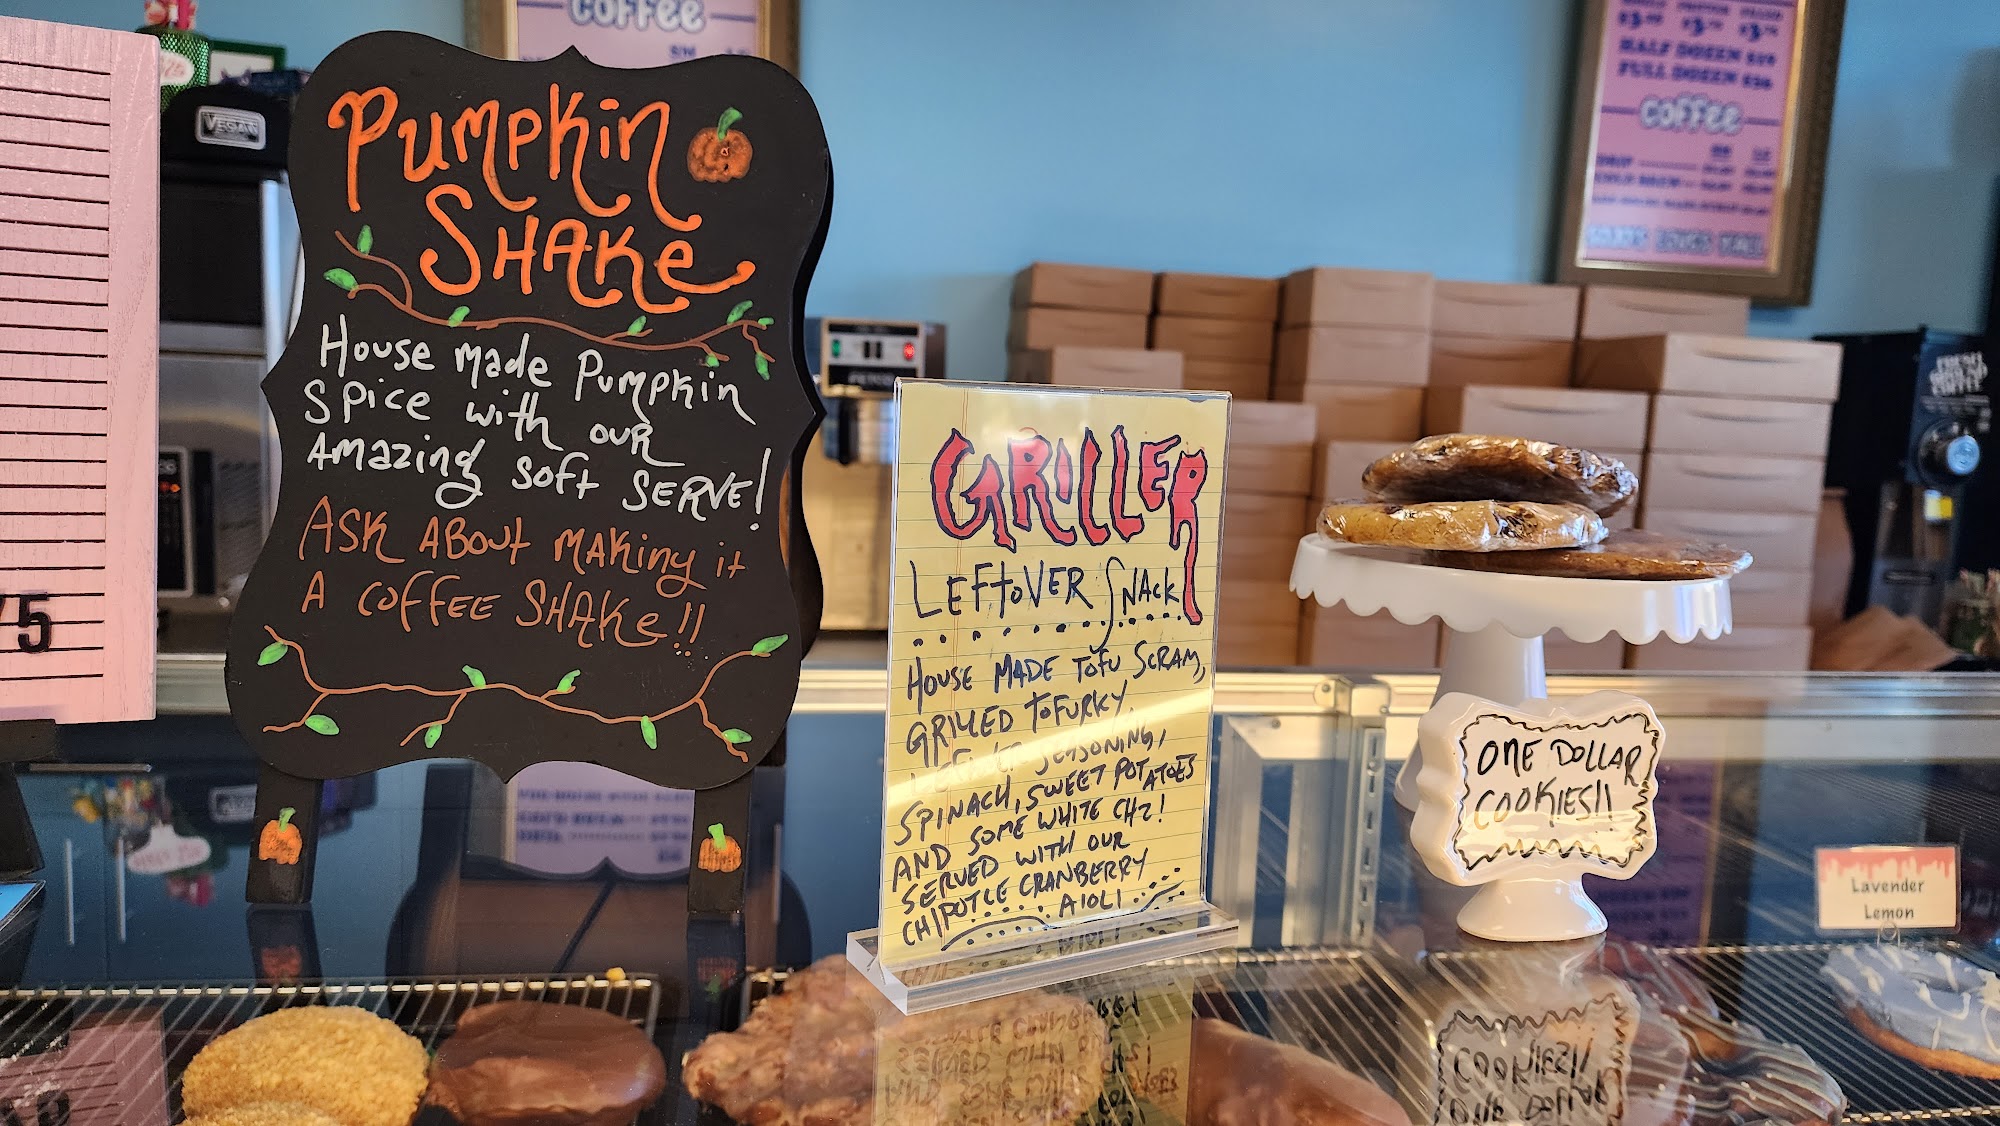 Pumpkin
Shake
House made Pumpkin
Spice with our
Amazing soft serve!
Ask about making it
a coffee shake!!
GRILLER
LEFTOVER SNACK
HOUSE MADE TOFU SCRAM,
GRILLED TOFURKY,
SEASONING,
SPINACH, SWEET POTATOES
AND SOME WHITE CHZ!
SERVED WITH OUR
CHIPOTLE CRANBERRY
AIOLI
ONE DOLLAR
COOKIES!!
Lavender
Lemon
VEGAN
5
coffee
SM
HALF DOZEN $19
FULL DOZEN $36
coffee
DRIP
COLD BREW
FRESH
GROUND
COFFEE